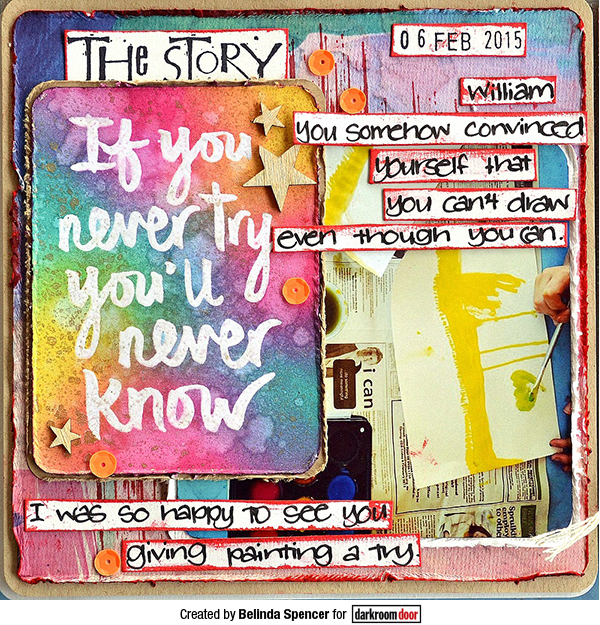 THE STORY
06 FEB 2015
William
you somehow convinced
yourself that
you can't draw
even though you can.
If you
never try
you'll
never
know
i can
I was so happy to see you
giving painting a try.
Created by Belinda Spencer for darkroomdoor